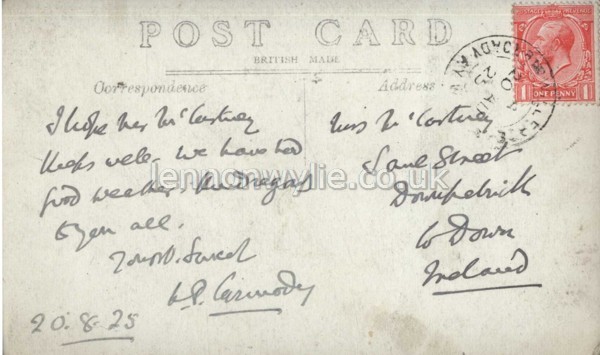 POST CARD
BRITISH MADE
Correspondence
Address
I hope Mrs McCartney
keeps well. We have had
good weather. Kind Regards
to you all.
Yours
W.P. Carmody
20.8.25
Miss McCartney
Saul Street
Downpatrick
Co Down
Ireland
lennonwylie.co.uk
ONE PENNY
1
1